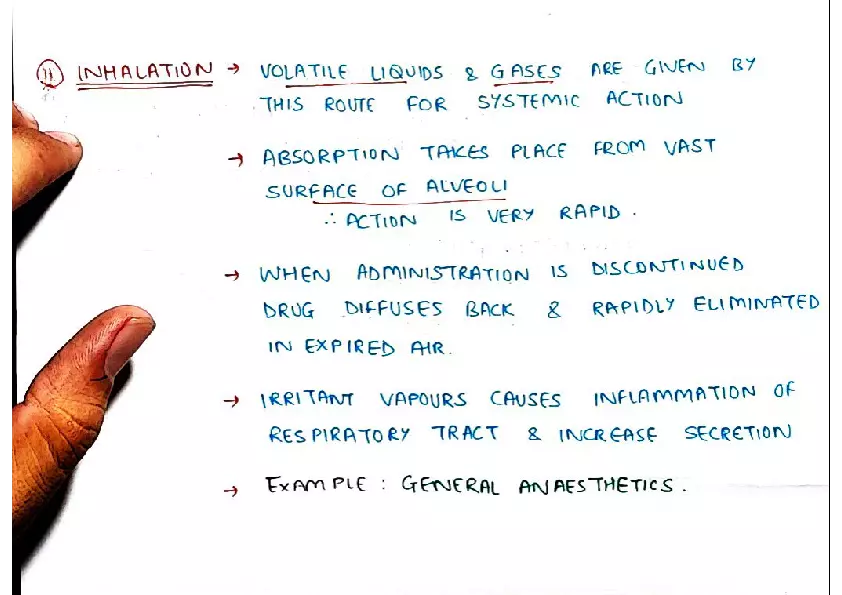 11 INHALATION → VOLATILE LIQUIDS & GASES ARE GIVEN BY
THIS ROUTE FOR SYSTEMIC ACTION
→ ABSORPTION TAKES PLACE FROM VAST
SURFACE OF ALVEOLI
∴ ACTION IS VERY RAPID.
→ WHEN ADMINISTRATION IS DISCONTINUED
DRUG DIFFUSES BACK & RAPIDLY ELIMINATED
IN EXPIRED AIR.
→ IRRITANT VAPOURS CAUSES INFLAMMATION OF
RESPIRATORY TRACT & INCREASE SECRETION
→ EXAMPLE : GENERAL ANAESTHETICS.